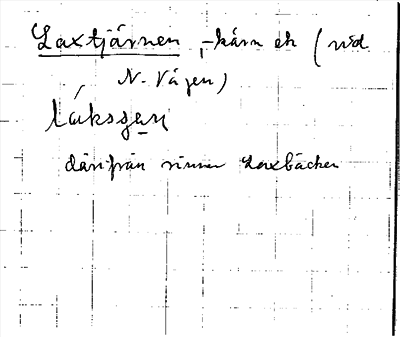 Laxtjärnen, -kärn ek (vid
N. Vägen)
låksçęn
därifrån rinner Laxbäcken